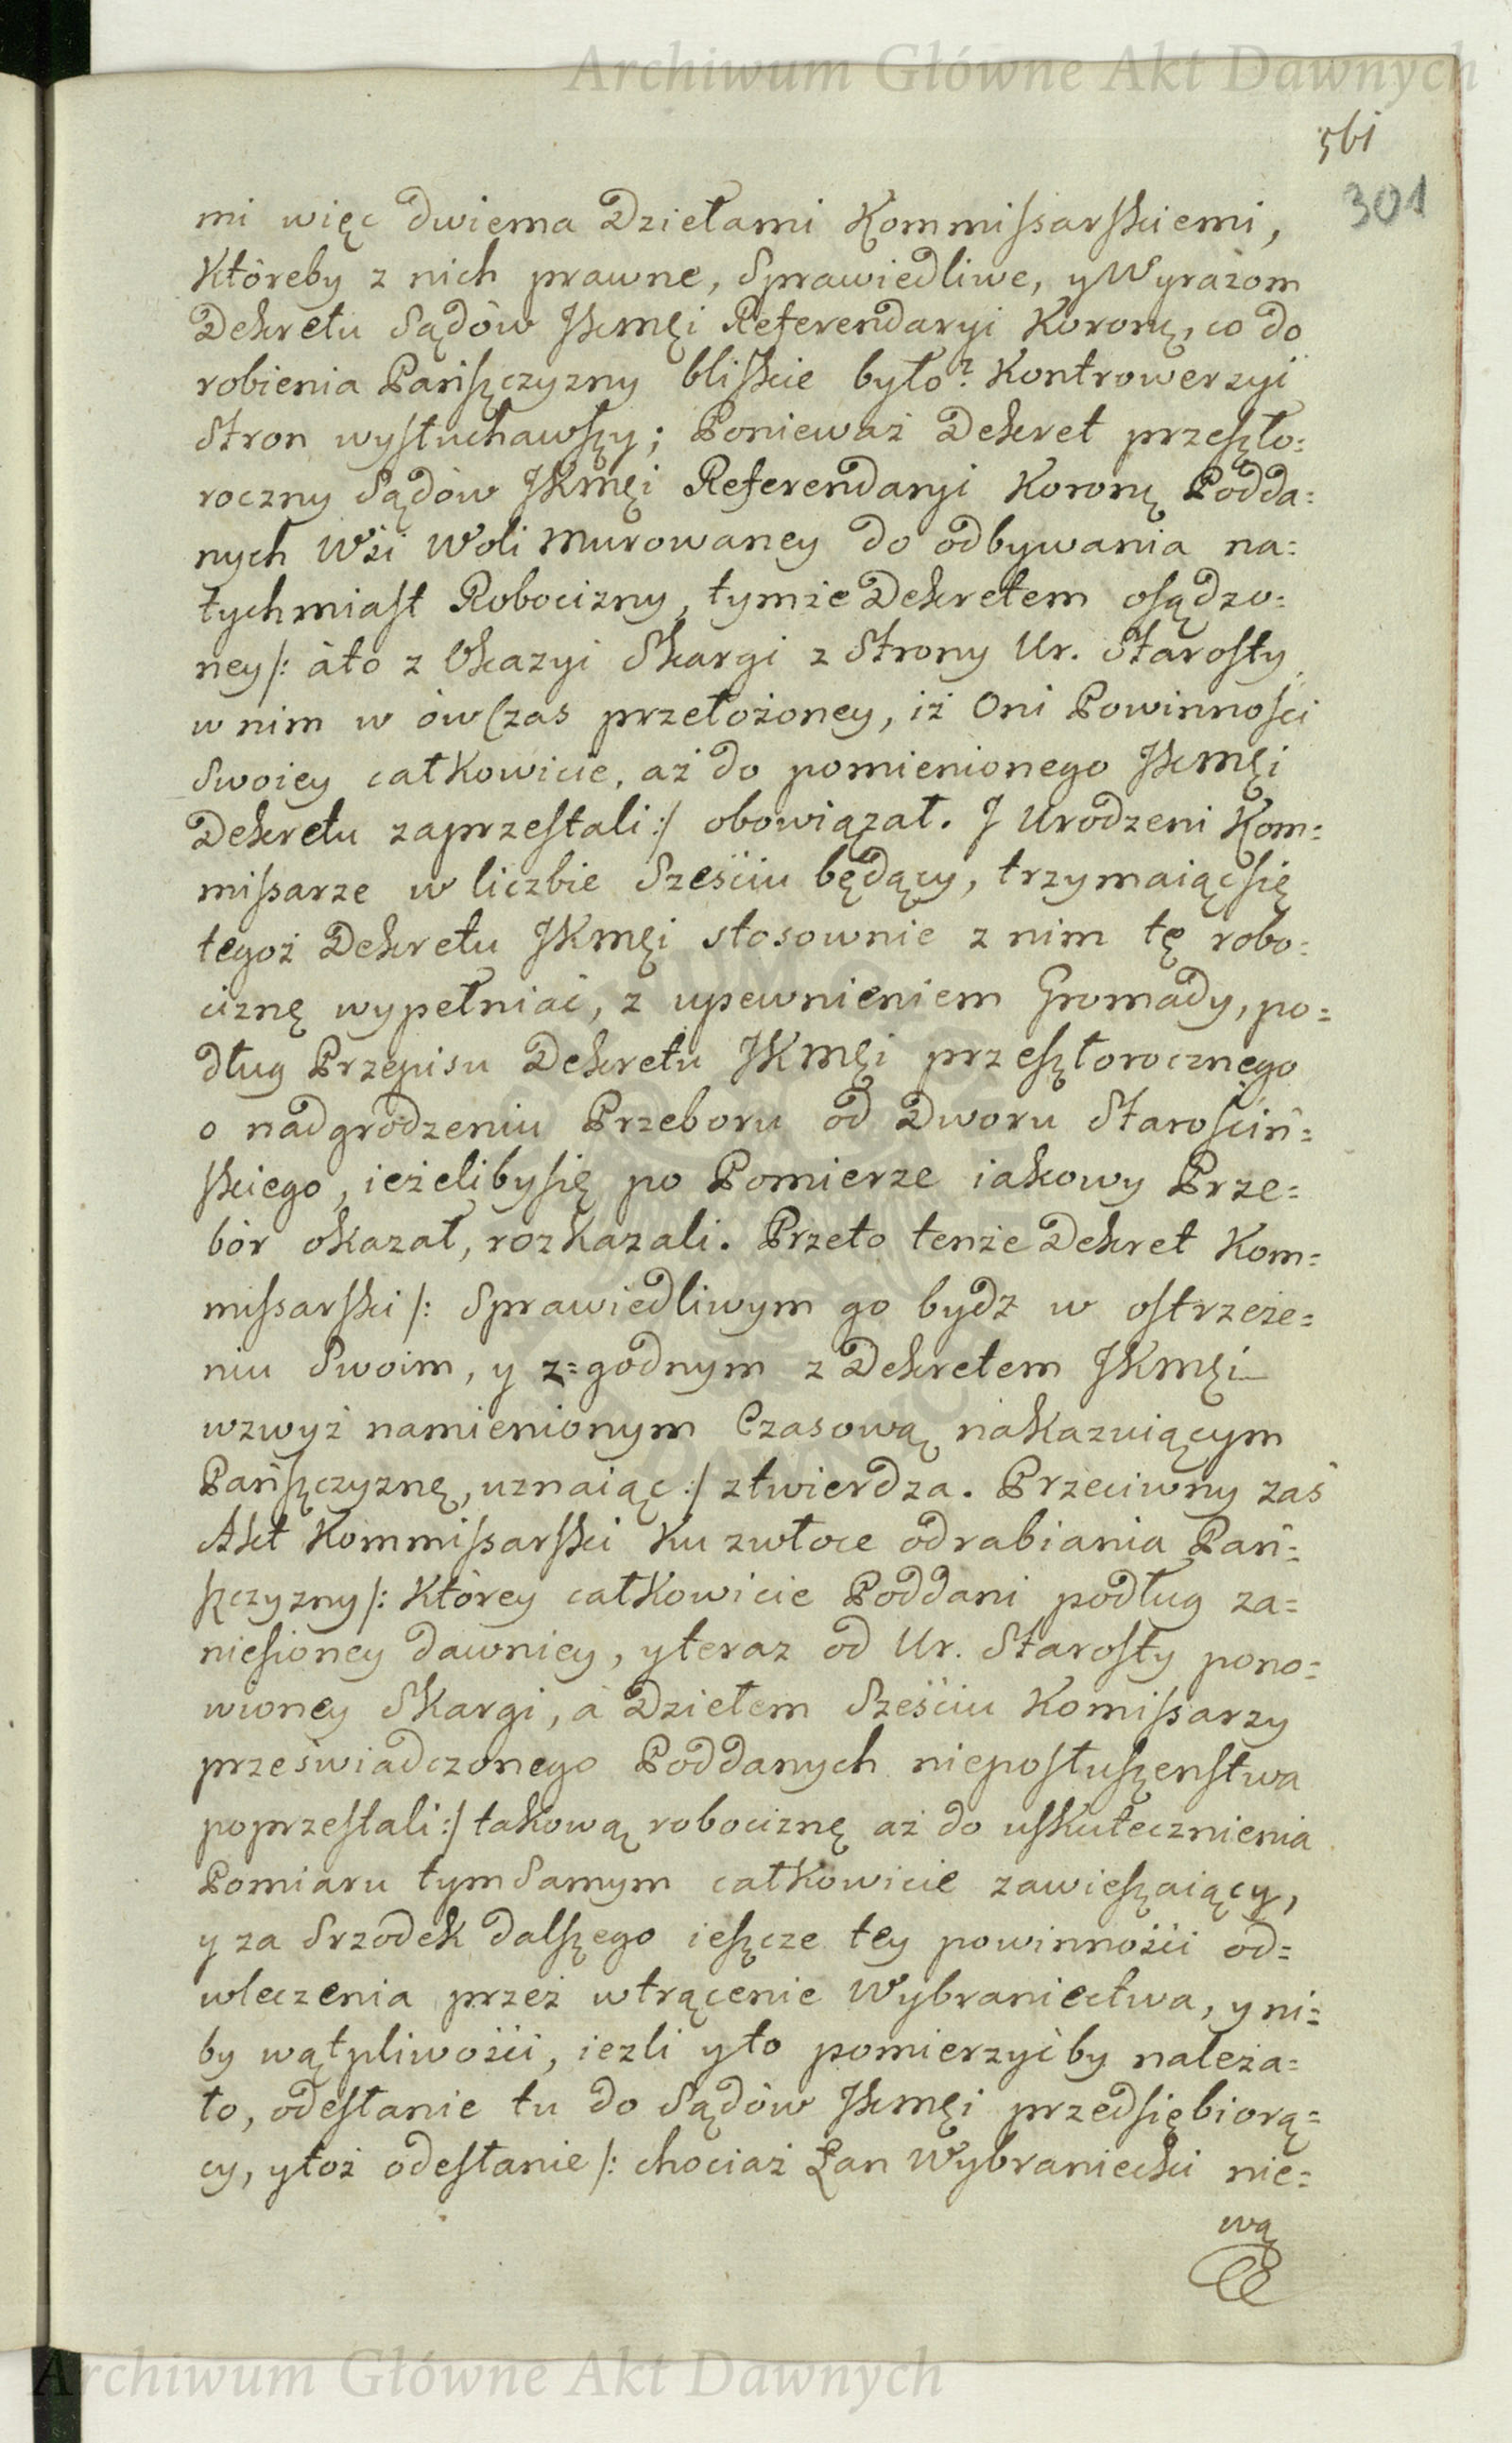 Archiwum Główne Akt Dawnych
561
301
mi więc dwiema Dziełami Kommissarskiemi,
Któreby z nich prawne, Sprawiedliwe, y Wyrazom
Dekretu Sądów JKmęi Referendaryi Koronę, co do
robienia Pańszczyzny bliskie było? Kontrowerzyi
Stron wysłuchawszy; Ponieważ Dekret przeszło=
roczny Sądów JKmęi Referendaryi Koronę Podda=
nych Wśi Woli Murowaney do odbywania na=
tychmiast Robocizny, tymże Dekretem osądzo=
ney /: áto z Okazyi Skargi z Strony Ur. Starosty
w nim w ów Czas przełożoney, iż Oni Powinności
Swoiey całkowicie, aż do pomienionego JKmęi
Dekretu zaprzestali :/ obowiązał. J Urodzeni Kom=
missarze w liczbie Sześciu będący, trzymaiąc się
tegoż Dekretu JKmęi stosownie z nim tę robo=
ciznę wypełniać, z upewnieniem Gromady, po=
dług Przepisu Dekretu JKmęi przeszłorocznego
o nadgrodzeniu Przeboru od Dworu Starościń=
skiego, ieżeliby się po Pomierze iakowy Prze=
bór okazał, rozkazali. Przeto tenże Dekret Kom=
missarski /: Sprawiedliwym go bydz w ostrzeże=
niu Swoim, y z=godnym z Dekretem JKmęi
wzwyż namienionym Czasową nakazuiącym
Pańszczyznę, uznaiąc :/ ztwierdza. Przeciwny zaś
Akt Kommissarski Ku zwłoce odrabiania Pań=
szczyzny /: Którey całkowicie Poddani podług za=
niesioney dawniey, y teraz od Ur. Starosty pono=
wioney Skargi, á Dziełem Sześciu Komissarzy
przeświadczonego Poddanych nieposłuszenstwa
poprzestali :/ takową robociznę aż do uskutecznienia
Pomiaru tym Samym całkowicie zawieszaiący,
y za Srzodek dalszego ieszcze tey powinności od=
wleczenia przez wtrącenie Wybraniectwa, y ni=
by wątpliwości, iezli y to pomierzyć by należa=
ło, odesłanie tu do Sądów JKmęi przedsiębiorą=
cy, y toż odesłanie /: chociaż Łan Wybraniecki nie=
wą
Archiwum Główne Akt Dawnych